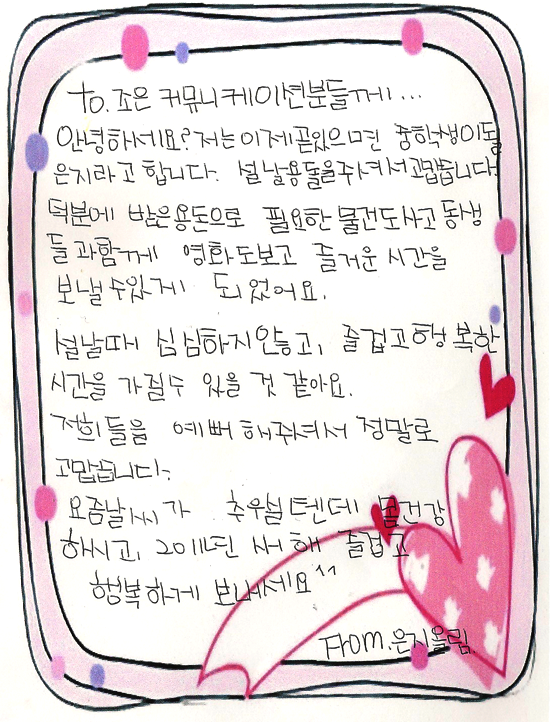 to. 조은 커뮤니케이션분들께...
안녕하세요? 저는 이제 곧있으면 중학생이 될
은지라고 합니다. 설날용돈을주셔서고맙습니다.
덕분에 받은용돈으로 필요한 물건도사고 동생
들과함께 영화도보고 즐거운 시간을
보낼수있게 되었어요.
설날때 심심하지안능고, 즐겁고행복한
시간을 가질수 있을 것 같아요.
저희들을 예뻐해주셔서 정말로
고맙습니다.
요즘날씨가 추우실텐데 몸건강
하시고, 2011년 새해 즐겁고
행복하게 보내세요^^
From. 은지올림